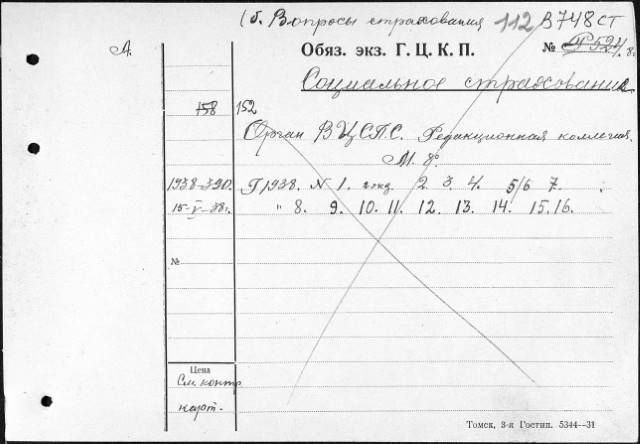 (б. Вопросы страхования 112 В748 СТ
А. Обяз. экз. Г. Ц. К. П. № Г524/8.
Социальное страхование.
158 152
Орган ВЦСПС. Редакционная коллегия.
М. 8°
1938-390. Г 1938. N 1. 2. 3. 4. 5/6 7.
15-V-38г. " 8. 9. 10. 11. 12. 13. 14. 15. 16.
№
Цена
См. контр.
карт.
Томск, 3-я Гостип. 5344—31